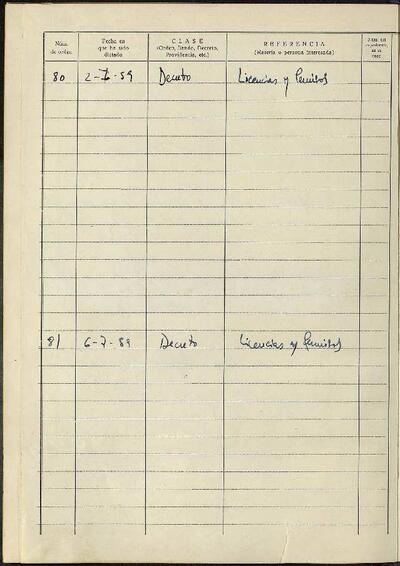 Núm. de orden
Fecha en que ha sido dictado
CLASE
(Orden, Bando, Decreto, Providencia, etc.)
REFERENCIA
(Materia o persona interesada)
80 2-7-59 Decreto Licencias y Permisos
81 6-7-89 Decreto Licencias y Permisos